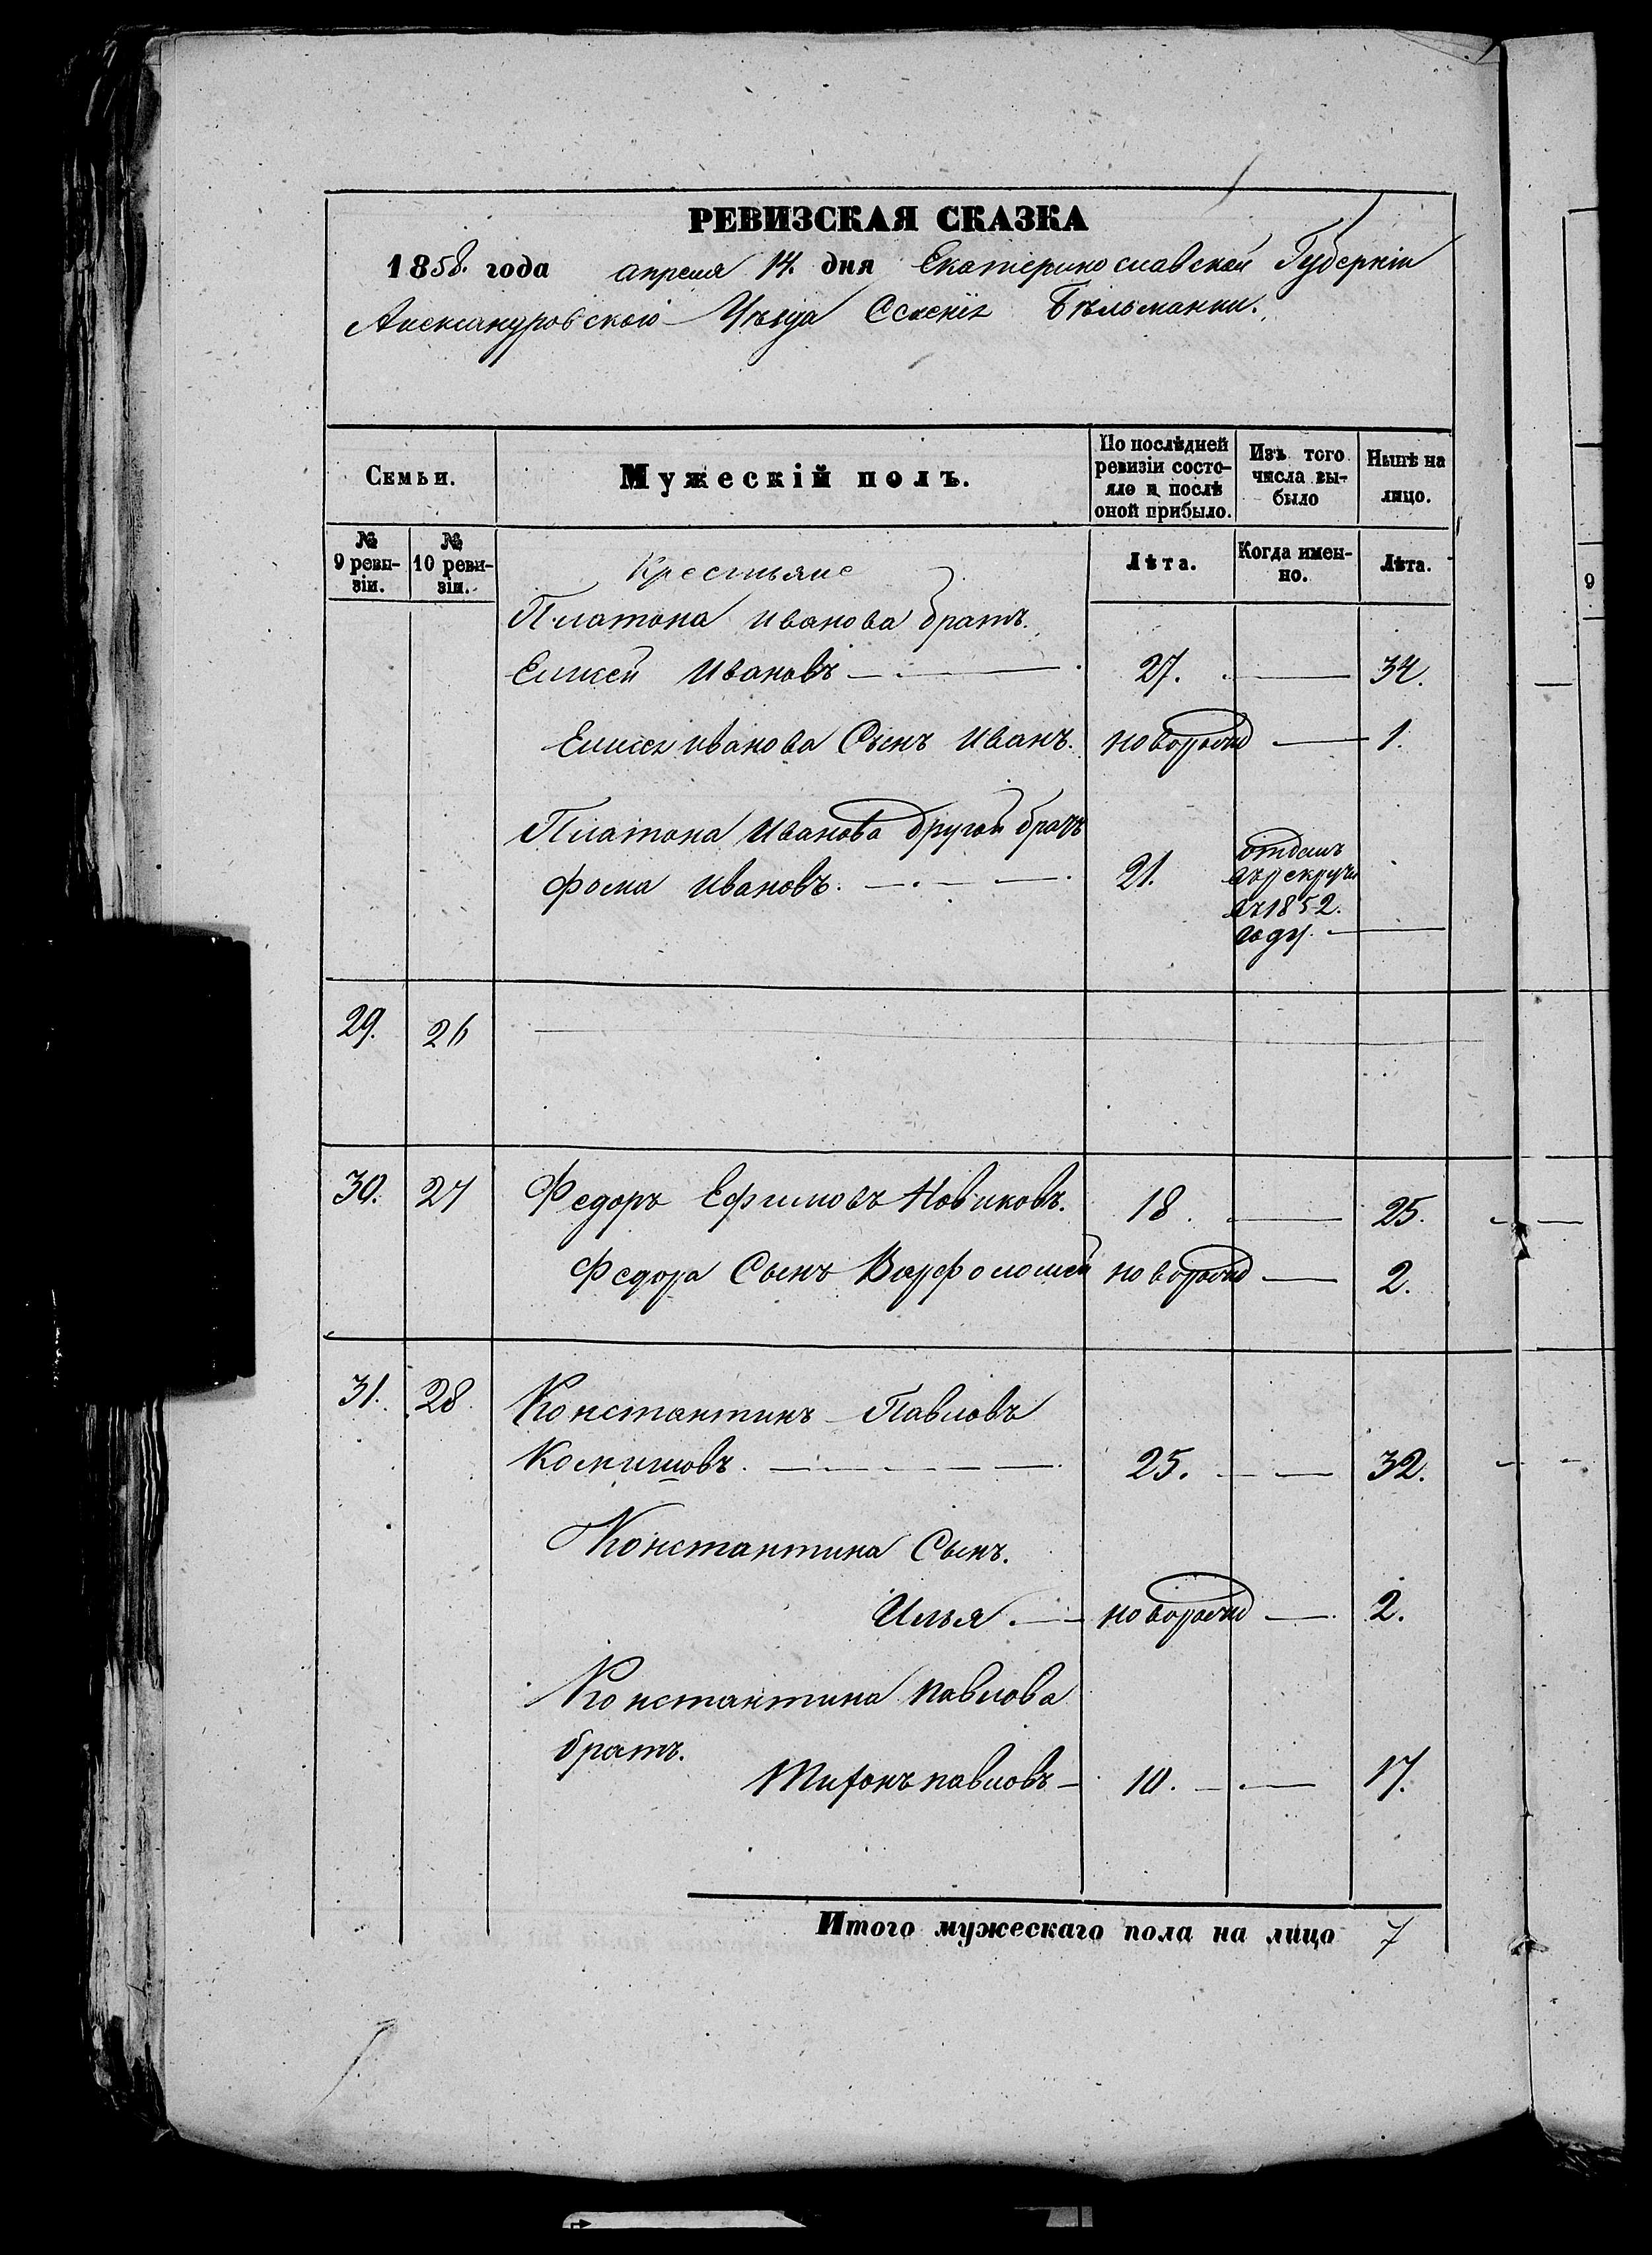 РЕВИЗСКАЯ СКАЗКА
1858. года апреля 14. дня Екатеринославской Губерніи
Александровскаго Уѣзда Селенія Бѣльманки.
Семьи. Мужескій полъ. По послѣдней ревизіи состояло и послѣ оной прибыло. Изъ того числа выбыло Нынѣ на лицо.
№ 9 ревизіи. № 10 ревизіи. Крестьяне Лѣта. Когда именно. Лѣта.
Платона Иванова братъ.
Елисей Ивановъ 27. 34.
Елисея Иванова Сынъ Иванъ. новорожд 1.
Платона Иванова другой братъ
Фома Ивановъ. 21. отданъ
въ рекруты
въ 1852.
году.
29. 26
30. 27 Федоръ Ефимовъ Новиковъ. 18. 25.
Федора Сынъ Варфоломей новорожд 2.
31. 28 Константинъ Павловъ
25. 32.
Константина Сынъ.
Илья. новорожд 2.
Константина Павлова
братъ.
Миронъ Павловъ 10. 17.
Итого мужескаго пола на лицо 7
9